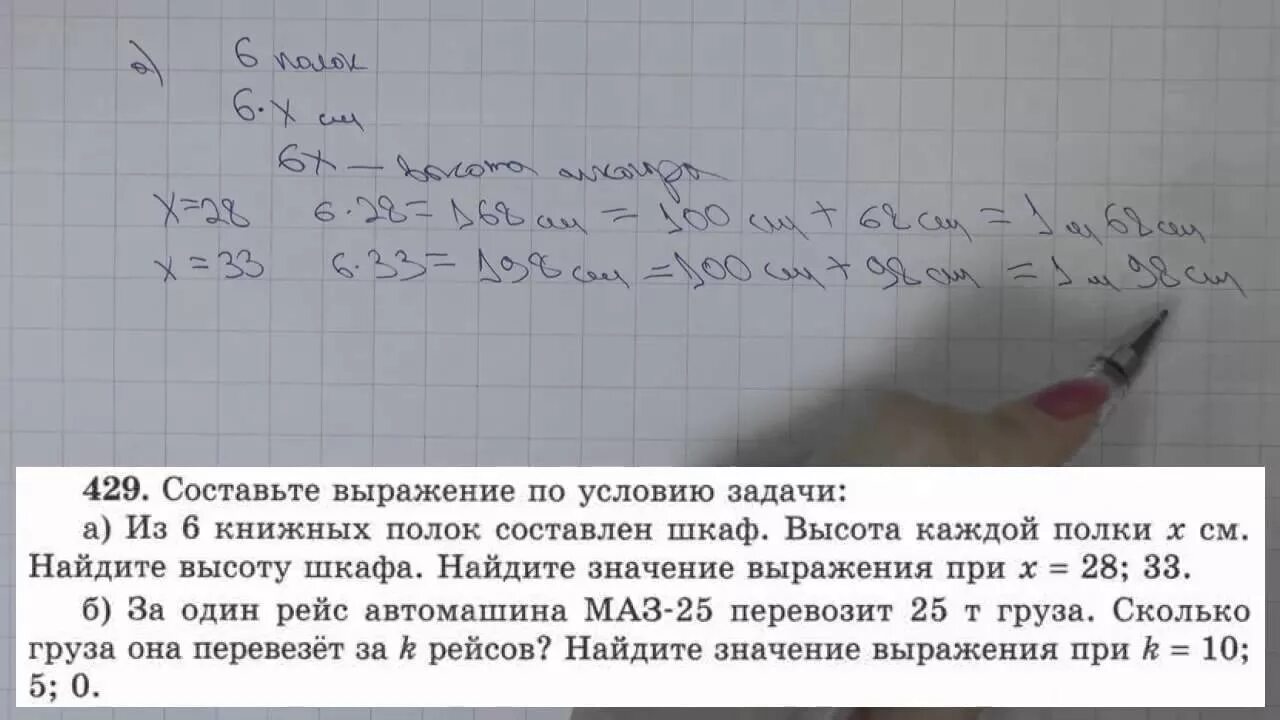 а) 6 полок
6·x см
6x — высота шкафа
x=28 6·28=168 см = 100 см + 68 см = 1 м 68 см
x=33 6·33=198 см =100 см + 98 см = 1 м 98 см
429. Составьте выражение по условию задачи:
а) Из 6 книжных полок составлен шкаф. Высота каждой полки x см.
Найдите высоту шкафа. Найдите значение выражения при x = 28; 33.
б) За один рейс автомашина МАЗ-25 перевозит 25 т груза. Сколько
груза она перевезёт за k рейсов? Найдите значение выражения при k = 10;
5; 0.